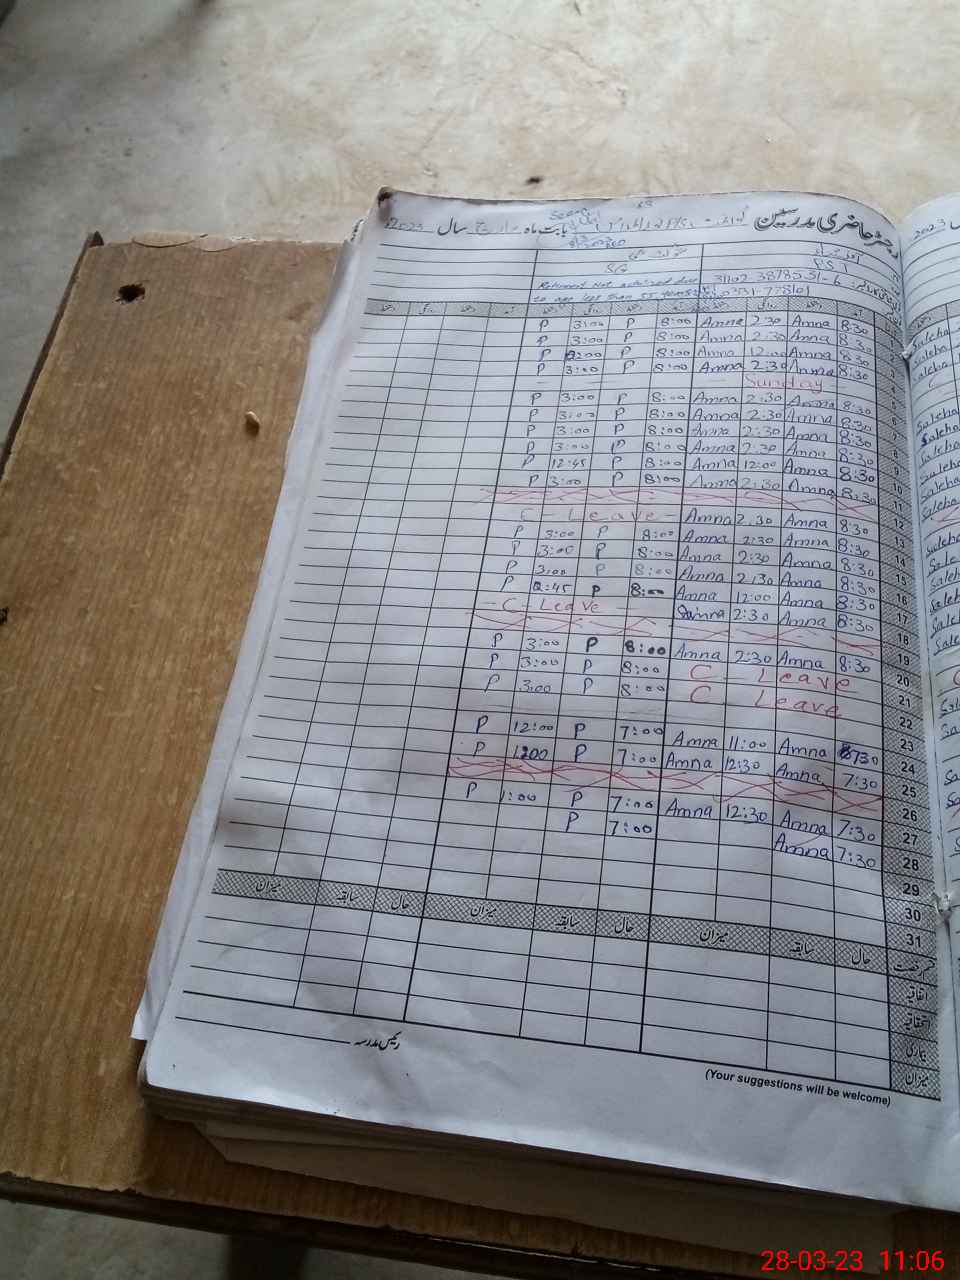 رجسٹر حاضری مدرسین بابت ماہ مارچ سال 2023
Seen
PST
31102-3878551-6
Retirement Not entertained due
to age less than 55 years
P 3:00 P 8:00 Amna 2:30 Amna 8:30 1
P 3:00 P 8:00 Amna 2:30 Amna 8:30 2
P 2:00 P 8:00 Amna 12:00 Amna 8:30 3
P 3:00 P 8:00 Amna 2:30 Amna 8:30 4
Sunday 5
P 3:00 P 8:00 Amna 2:30 Amna 8:30 6
P 3:00 P 8:00 Amna 2:30 Amna 8:30 7
P 3:00 P 8:00 Amna 2:30 Amna 8:30 8
P 3:00 P 8:00 Amna 2:30 Amna 8:30 9
P 12:45 P 8:00 Amna 12:00 Amna 8:30 10
P 3:00 P 8:00 Amna 2:30 Amna 8:30 11
12
C - Leave Amna 2:30 Amna 8:30 13
P 3:00 P 8:00 Amna 2:30 Amna 8:30 14
P 3:00 P 8:00 Amna 2:30 Amna 8:30 15
P 3:00 P 8:00 Amna 2:30 Amna 8:30 16
P 2:45 P 8:00 Amna 12:00 Amna 8:30 17
C - Leave Amna 2:30 Amna 8:30 18
19
P 3:00 P 8:00 Amna 2:30 Amna 8:30 20
P 3:00 P 8:00 C - Leave 21
P 3:00 P 8:00 C - Leave 22
23
P 12:00 P 7:00 Amna 11:00 Amna 730 24
P 1200 P 7:00 Amna 12:30 Amna 7:30 25
26
P 1:00 P 7:00 Amna 12:30 Amna 7:30 27
P 7:00 Amna 7:30 28
29
30
31
میزان سابقہ حال میزان سابقہ حال میزان سابقہ حال
اتفاقیہ
بیماری
میزان
رئیس مدرسہ
(Your suggestions will be welcome)
2023
Saleha
Saleha
Saleha
Saleha
Saleha
Saleha
Saleha
Saleha
Saleha
28-03-23 11:06